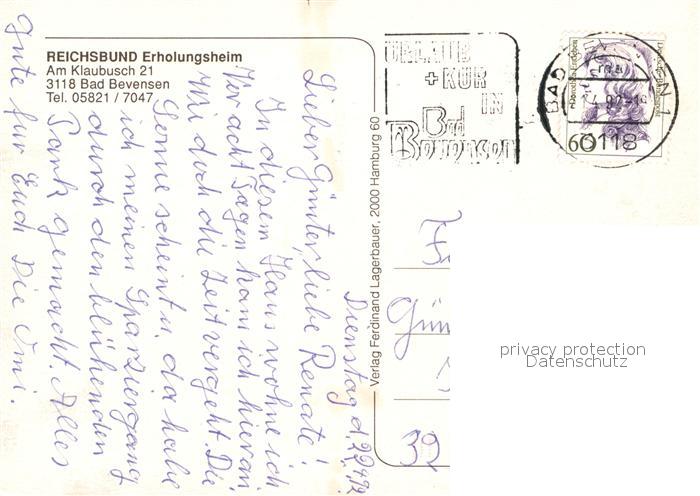 REICHSBUND Erholungsheim
Am Klaubusch 21
3118 Bad Bevensen
Tel. 05821 / 7047
URLAUB
+ KUR
IN
Bad
Bevensen
BAD
3118
60
Verlag Ferdinand Lagerbauer, 2000 Hamburg 60
Dienstag d. 22.4.92
Lieber Günter, liebe Renate!
In diesem Haus wohne ich
Vor acht Tagen kam ich hier an
Wie doch die Zeit vergeht. Die
Sonne scheint u. da habe
ich meinen Spaziergang
durch den blühenden
Park gemacht. Alles
Gute für Euch Die Omi.
Gün
39
privacy protection
Datenschutz